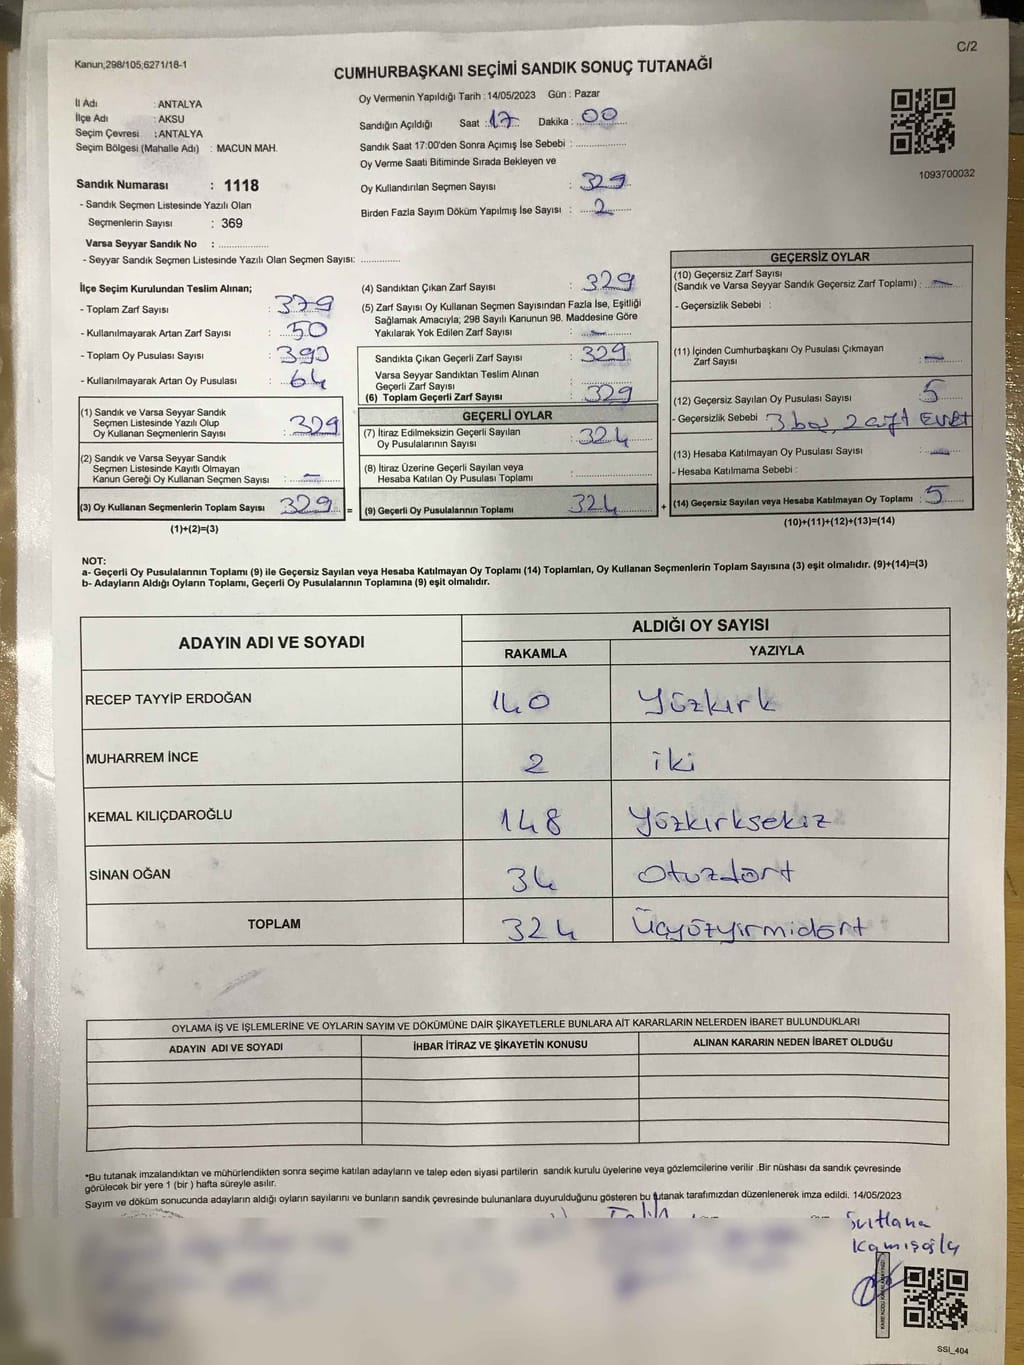 C/2
Kanun,298/105;6271/18-1
CUMHURBAŞKANI SEÇİMİ SANDIK SONUÇ TUTANAĞI
İl Adı : ANTALYA
İlçe Adı : AKSU
Seçim Çevresi : ANTALYA
Seçim Bölgesi (Mahalle Adı) : MACUN MAH.
Sandık Numarası : 1118
- Sandık Seçmen Listesinde Yazılı Olan
Seçmenlerin Sayısı : 369
Varsa Seyyar Sandık No :
- Seyyar Sandık Seçmen Listesinde Yazılı Olan Seçmen Sayısı:
Oy Vermenin Yapıldığı Tarih : 14/05/2023 Gün : Pazar
Sandığın Açıldığı Saat : 17 Dakika : 00
Sandık Saat 17:00'den Sonra Açımış İse Sebebi :
Oy Verme Saati Bitiminde Sırada Bekleyen ve
Oy Kullandırılan Seçmen Sayısı : 329
Birden Fazla Sayım Döküm Yapılmış İse Sayısı : 2
1093700032
İlçe Seçim Kurulundan Teslim Alınan;
- Toplam Zarf Sayısı : 379
- Kullanılmayarak Artan Zarf Sayısı : 50
- Toplam Oy Pusulası Sayısı : 393
- Kullanılmayarak Artan Oy Pusulası : 64
(1) Sandık ve Varsa Seyyar Sandık
Seçmen Listesinde Yazılı Olup
Oy Kullanan Seçmenlerin Sayısı : 329
(2) Sandık ve Varsa Seyyar Sandık
Seçmen Listesinde Kayıtlı Olmayan
Kanun Gereği Oy Kullanan Seçmen Sayısı : -
(3) Oy Kullanan Seçmenlerin Toplam Sayısı 329 =
(1)+(2)=(3)
(4) Sandıktan Çıkan Zarf Sayısı : 329
(5) Zarf Sayısı Oy Kullanan Seçmen Sayısından Fazla İse, Eşitliği
Sağlamak Amacıyla; 298 Sayılı Kanunun 98. Maddesine Göre
Yakılarak Yok Edilen Zarf Sayısı : -
Sandıkta Çıkan Geçerli Zarf Sayısı : 329
Varsa Seyyar Sandıktan Teslim Alınan
Geçerli Zarf Sayısı :
(6) Toplam Geçerli Zarf Sayısı : 329
GEÇERLİ OYLAR
(7) İtiraz Edilmeksizin Geçerli Sayılan
Oy Pusulalarının Sayısı : 324
(8) İtiraz Üzerine Geçerli Sayılan veya
Hesaba Katılan Oy Pusulası Toplamı :
(9) Geçerli Oy Pusulalarının Toplamı 324 +
GEÇERSİZ OYLAR
(10) Geçersiz Zarf Sayısı
(Sandık ve Varsa Seyyar Sandık Geçersiz Zarf Toplamı) : -
- Geçersizlik Sebebi :
(11) İçinden Cumhurbaşkanı Oy Pusulası Çıkmayan
Zarf Sayısı : -
(12) Geçersiz Sayılan Oy Pusulası Sayısı : 5
- Geçersizlik Sebebi 3 boş, 2 çift Evet
(13) Hesaba Katılmayan Oy Pusulası Sayısı : -
- Hesaba Katılmama Sebebi :
(14) Geçersiz Sayılan veya Hesaba Katılmayan Oy Toplamı : 5
(10)+(11)+(12)+(13)=(14)
NOT:
a- Geçerli Oy Pusulalarının Toplamı (9) ile Geçersiz Sayılan veya Hesaba Katılmayan Oy Toplamı (14) Toplamları, Oy Kullanan Seçmenlerin Toplam Sayısına (3) eşit olmalıdır. (9)+(14)=(3)
b- Adayların Aldığı Oyların Toplamı, Geçerli Oy Pusulalarının Toplamına (9) eşit olmalıdır.
ADAYIN ADI VE SOYADI ALDIĞI OY SAYISI
RAKAMLA YAZIYLA
RECEP TAYYİP ERDOĞAN 140 Yüzkırk
MUHARREM İNCE 2 iki
KEMAL KILIÇDAROĞLU 148 Yüzkırksekiz
SİNAN OĞAN 34 Otuzdört
TOPLAM 324 Üçyüzyirmidört
OYLAMA İŞ VE İŞLEMLERİNE VE OYLARIN SAYIM VE DÖKÜMÜNE DAİR ŞİKAYETLERLE BUNLARA AİT KARARLARIN NELERDEN İBARET BULUNDUKLARI
ADAYIN ADI VE SOYADI İHBAR İTİRAZ VE ŞİKAYETİN KONUSU ALINAN KARARIN NEDEN İBARET OLDUĞU
*Bu tutanak imzalandıktan ve mühürlendikten sonra seçime katılan adayların ve talep eden siyasi partilerin sandık kurulu üyelerine veya gözlemcilerine verilir .Bir nüshası da sandık çevresinde
görülecek bir yere 1 (bir ) hafta süreyle asılır.
Sayım ve döküm sonucunda adayların aldığı oyların sayılarını ve bunların sandık çevresinde bulunanlara duyurulduğunu gösteren bu tutanak tarafımızdan düzenlenerek imza edildi. 14/05/2023
Svitlana
Kamışoğlu
SSI_404